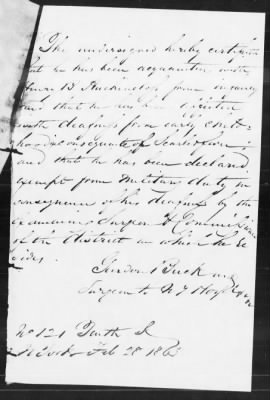 The undersigned hereby certifies
that he has been acquainted with
B Huntington from infancy
and that he has been afflicted
with deafness from early child-
hood consequent of Scarlet fever
and that he has been declared
exempt from military duty in
consequence of his deafness by the
Examining Surgeon &
of the District in which he re
sides.
Gurdon Buck MD
Surgeon to N Y
No 121 Tenth St
N York Feb 28 1865